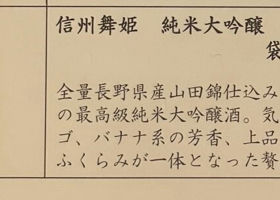 信州舞姫　純米大吟醸
袋
全量長野県産山田錦仕込み
の最高級純米大吟醸酒。気
ゴ、バナナ系の芳香、上品
ふくらみが一体となった贅